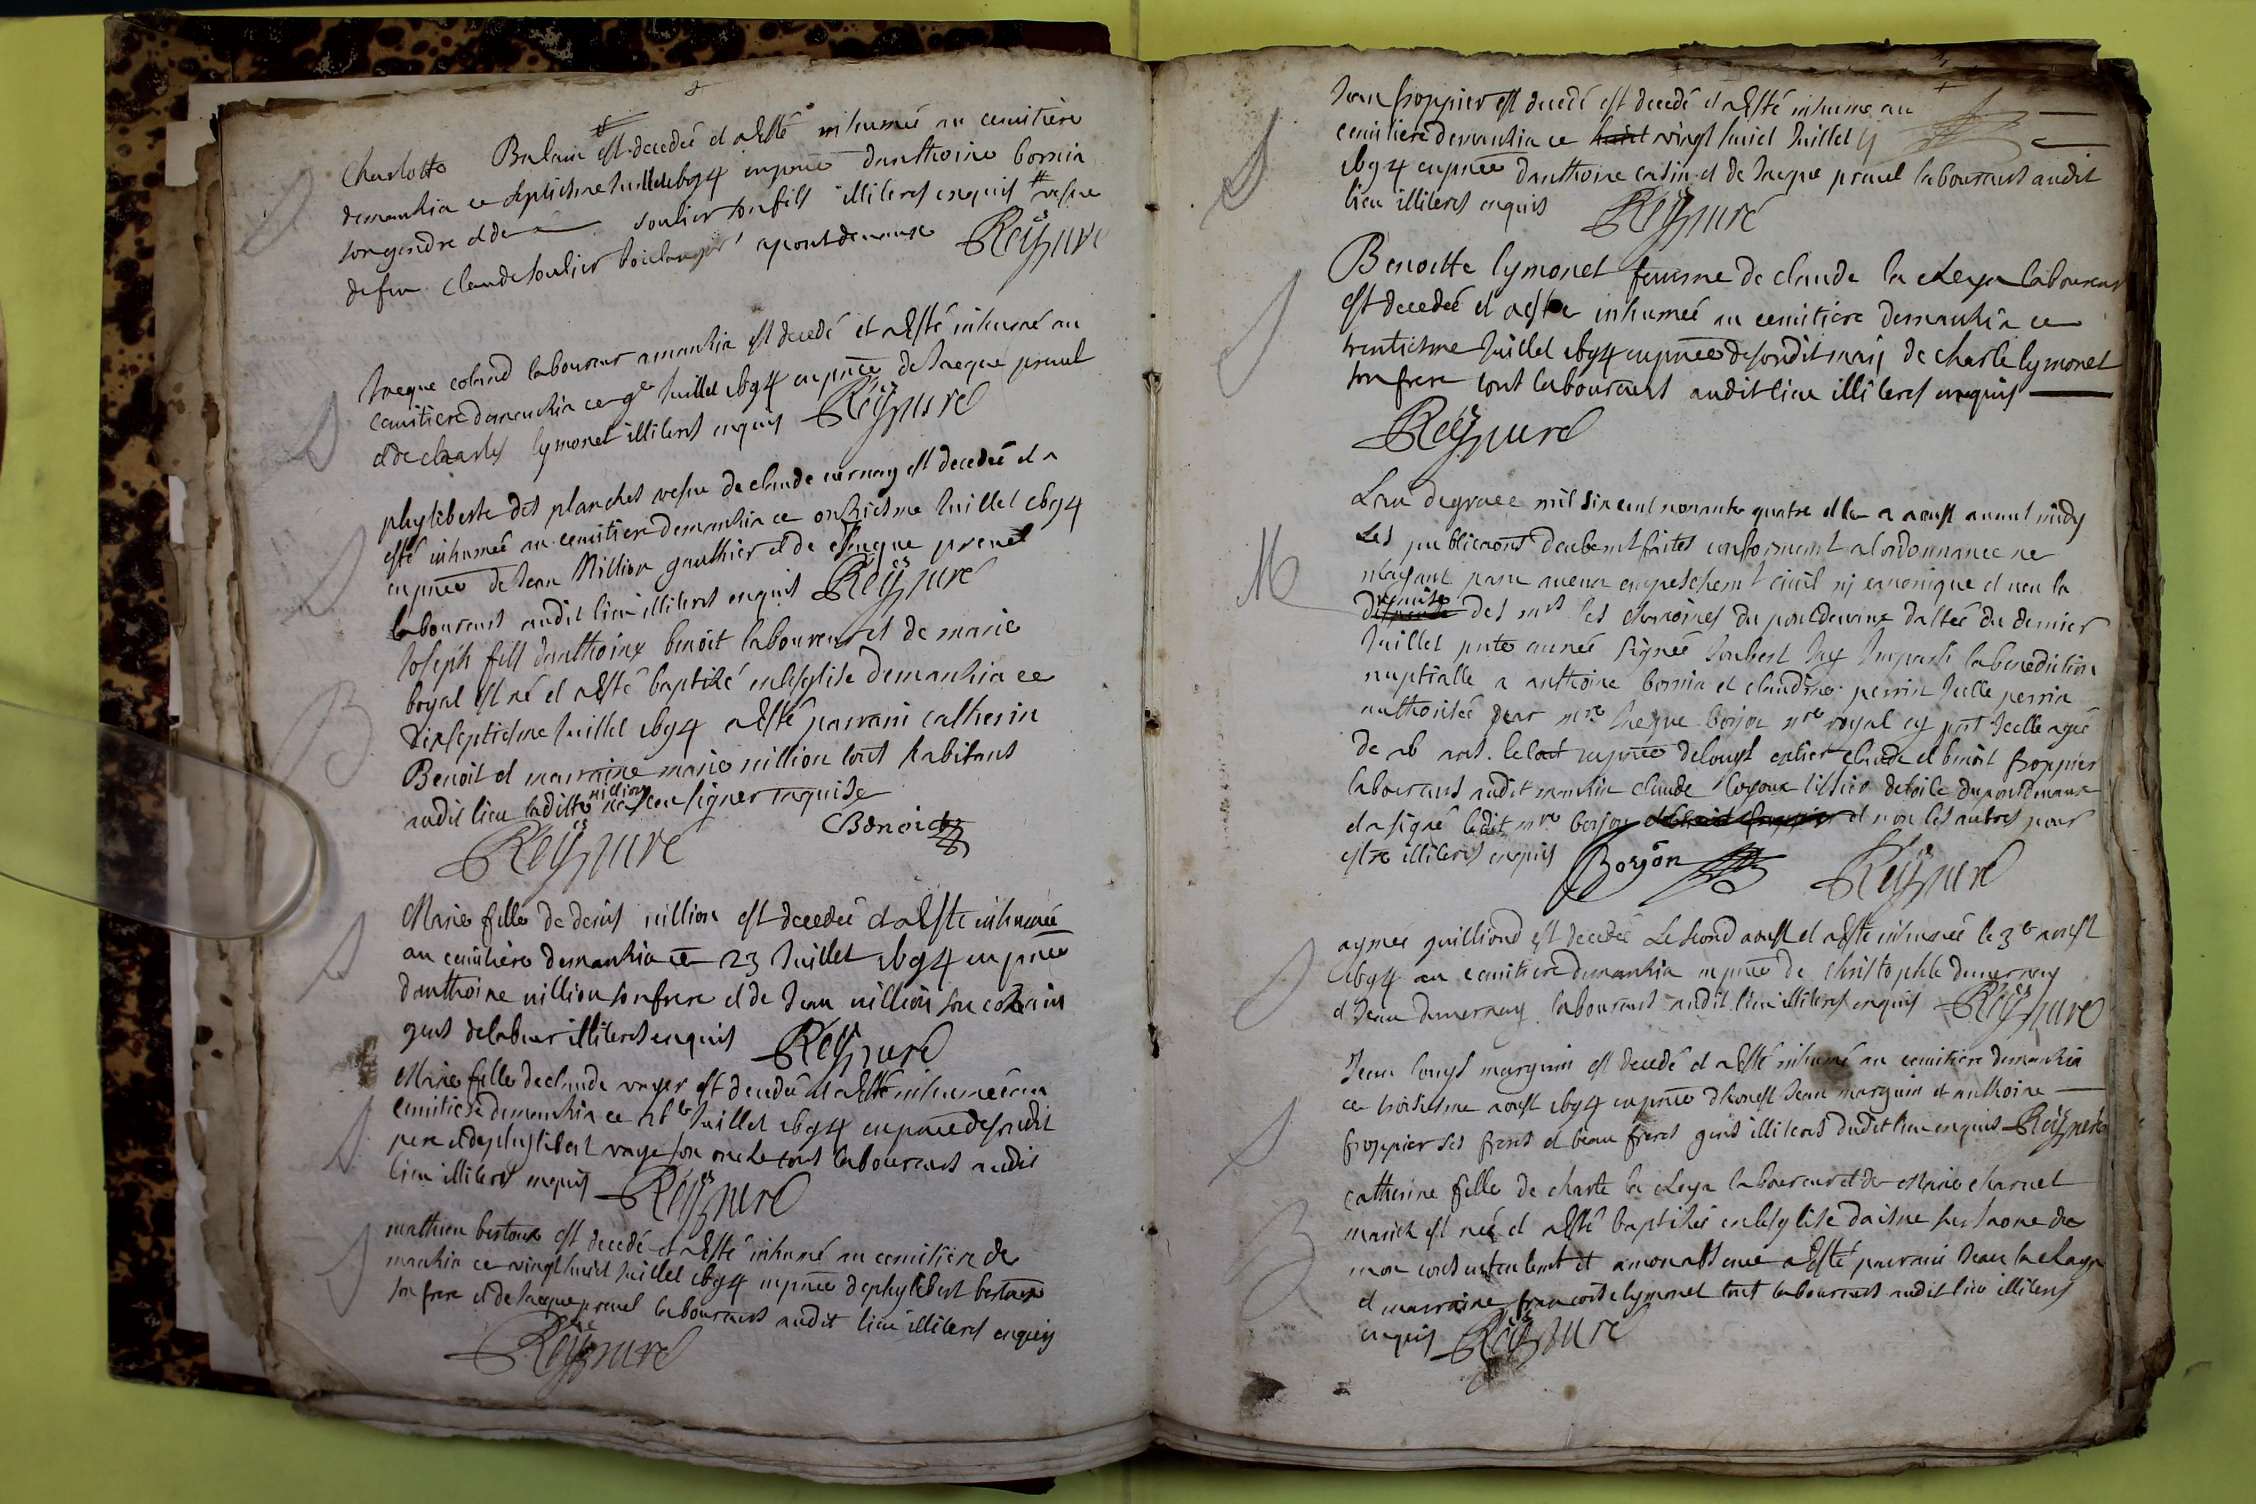 Charlotte Bulain est decedée et a Esté inhumée au cemitiere
demanhia ce septiesme Juillet 1694 enpnce danthoine bornia
son gendre et de soulier son fils illiteres enquis vesve
de feu Claude soulier boulanger a pontdevaux Reÿ curé
Jaeque coland laboureur a manhia est decedé et a Esté inhumé au
cemitiere demanhia ce 9e Juillet 1694 enpnce de Jacque pruuel
et de charles lymonet illiteres enquis Reÿ curé
phyliberte des planches vesve de claude vernay est decedée et a
esté inhumée au cemitiere demanhia ce onziesme Juillet 1694
enpnce de Jean Million gauthier et de Jacque pruuel
laboureurs audit lieu illiteres enquis Reÿ curé
Joseph fils danthoine benoit laboureur et de marie
boyal est né et a Esté baptizé enlesglise demanhia ce
dixseptiesme Juillet 1694 a Esté parrain catherin
Benoit et marraine marie million tous habitans
audit lieu laditte million na sceu signer enquise
Reÿ curé Benoit
Marie fille de denis million est decedée et a Esté inhumée
au cemitiere demanhia ce 23 Juillet 1694 enpnce
danthoine million son frere et de Jean million son cousin
gens delabeur illiteres enquis Reÿ curé
Marie fille declaude voyer est decedée et a Esté inhumée au
cemitiere demanhia ce 26e Juillet 1694 enpnce desondit
pere et de phylibert voyer son oncle tous laboureurs audit
lieu illiteres enquis Reÿ curé
mathieu bertoux est decedé et a Esté inhumé au cemitiere de
manhia ce vingt huict Juillet 1694 enpnce de phylibert bertoux
son frere et de Jacque pruuel laboureurs audit lieu illiteres enquis
Reÿ curé
Jean froppier est decedé est decedé et a Esté inhume au
cemitiere demanhia ce huict vingt huict Juillet
1694 enpnce danthoine catin et de Jacque pruuel laboureurs audit
lieu illiteres enquis Reÿ curé
Benoitte lymonet femme de claude la cleya laboureur
est decedée et a este inhumée au cemitiere demanhia ce
trentiesme Juillet 1694 enpnce desondit mary de charle lymonet
son frere tous laboureurs audit lieu illiteres enquis
Reÿ curé
Lan degrace mil sixcent nonante quatre et le 2 aoust avant midy
Les publicaons deubemt faites conformemt a lordonnance ne
aucun empeschemt civil ny canonique et veu la
remise des mrs les chanoines du pontdevaux dattée du dernier
Juillet pnte année signée Joubert Jay Imparti la benediction
nuptialle a anthoine bornia et claudine perrin Icelle perrin
authorisée par mre Jacque borjon nre royal cy pnt Icelle agée
de 26 ans. le tout enpnce delouys claude et benoit froppier
laboureurs audit manhia claude tissier detoile dupontdevaux
et a signé ledit mre borjon et non les autres pour
estre illiteres enquis Borjon Reÿ curé
aymée guilliond est decedée Le second aoust et a Este inhumée le 3e aoust
1694 au cemitiere demanhia enpnce de Christophle duvernay
et Jean duvernay laboureurs audit lieu illiteres enquis Reÿ curé
Jean louys marguin est decedé et a Esté inhumé au cemitiere demanhia
ce troisiesme aoust 1694 enpnce dhonest Jean marguin et anthoine
froppier ses freres et beau freres gens illiteres dudit lieu enquis Reÿ curé
catherine fille de charle la cleya laboureur et de Marie charuet
mariés est née et a Esté baptisée enlesglise daisne sur saone de
mon consentement et a mon absence a Esté parrain Jean la cleya
et marraine francoise lymonet tous laboureurs audit lieu illiteres
enquis Reÿ curé